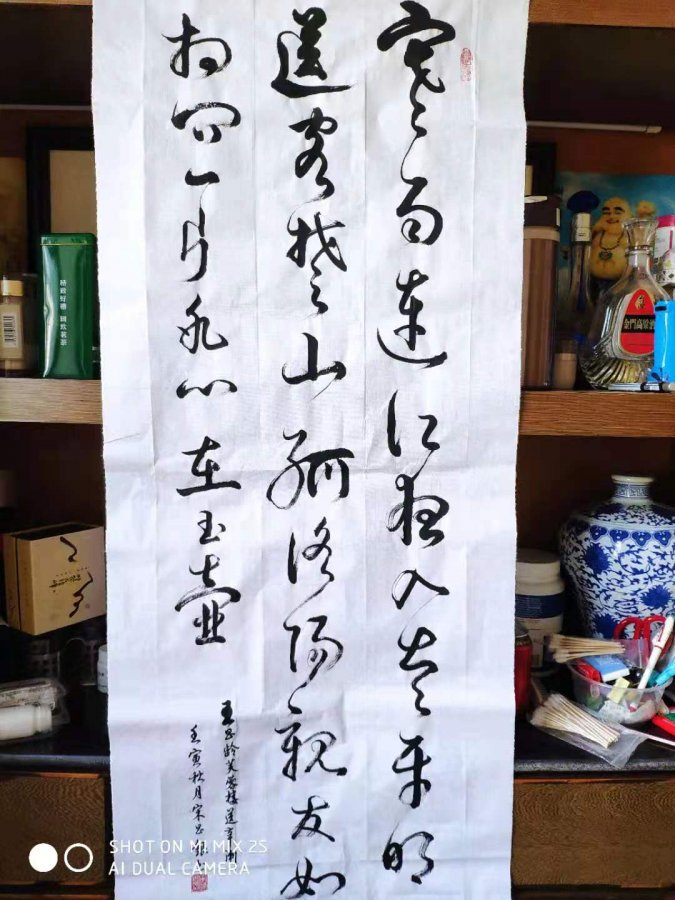 寒雨連江夜入吴平明
送客楚山孤洛陽親友如
相问一片冰心在玉壶
王昌龄芙蓉楼送辛渐
壬寅秋月宋
金門高粱酒
SHOT ON MI MIX 2S
AI DUAL CAMERA